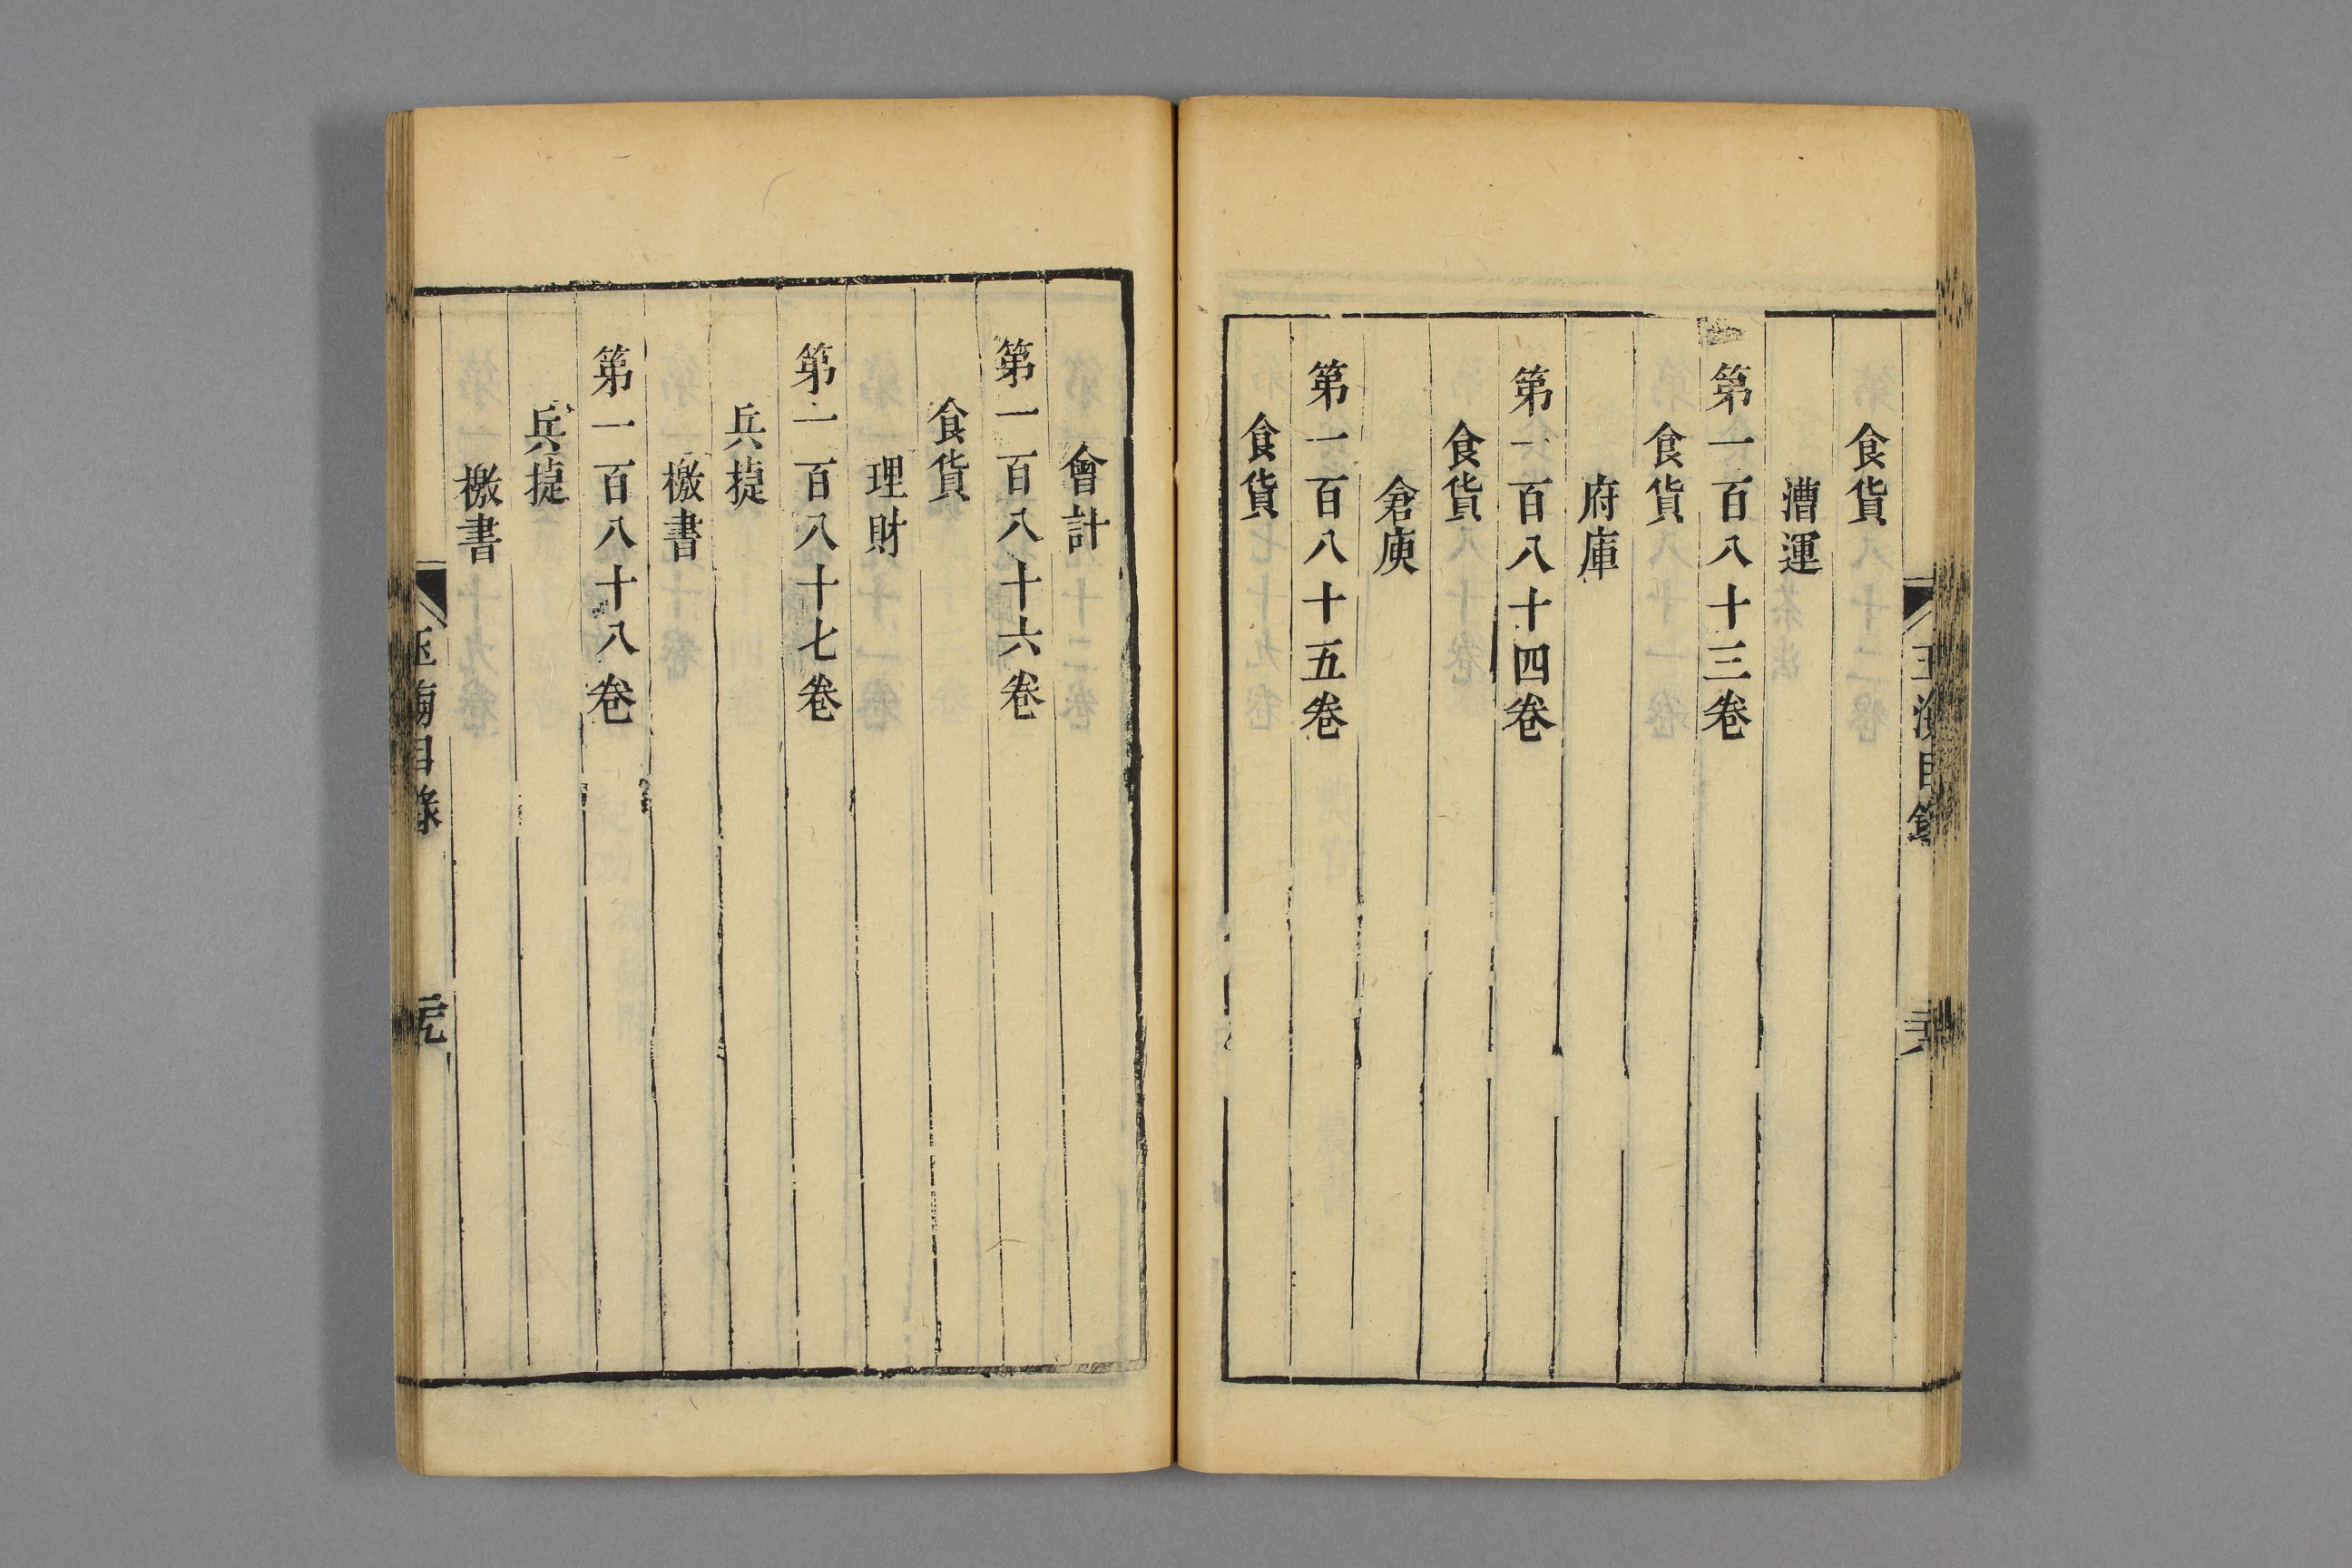 食貨
漕運
第一百八十三卷
食貨
府庫
第一百八十四卷
食貨
倉庾
第一百八十五卷
食貨
會計
第一百八十六卷
食貨
理財
第一百八十七卷
兵捷
檄書
第一百八十八卷
兵捷
檄書
玉海目錄